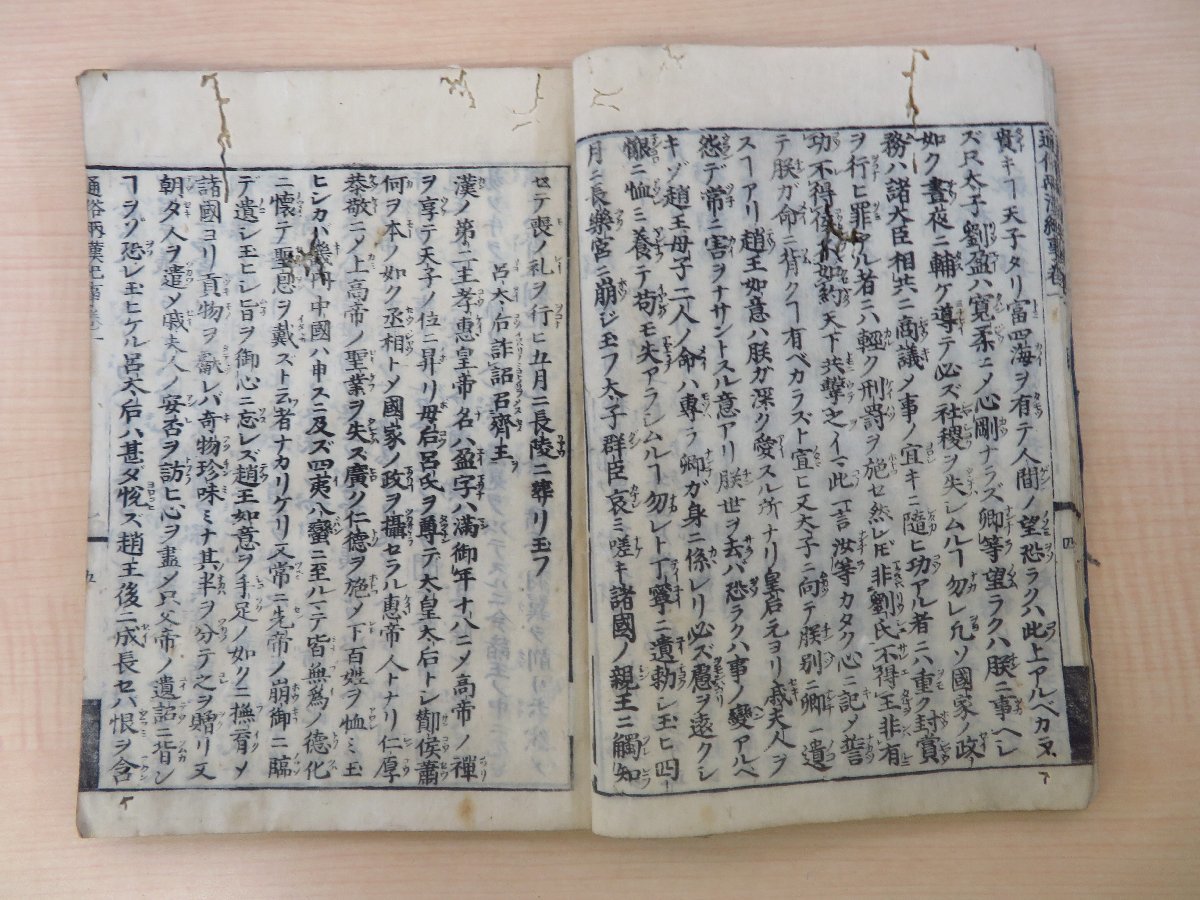 貴キヿ天子タリ富四海ヲ有テ人間ノ望恐ラクハ此上アルベカラ
ズ只太子劉盈ハ寛柔ニメ心剛ナラズ卿等望ラクハ朕ニ事ヘシ
如ク晝夜ニ輔ケ導テ必ズ社稷ヲ失シムルヿ勿レ凢ソ國家ノ政
務ハ諸大臣相共ニ商議メ事ノ宜キニ隨ヒ功アル者ニハ重ク封賞
ヲ行ヒ罪アル者ニハ輕ク刑罰ヲ施セ然レ𪜈非劉氏不得王非有
功不得侯不如約天下共擊之イマ此言汝等カタク心ニ記メ誓
テ朕ガ命ニ背クヿ有ベカラズト宣ヒ又太子ニ向テ朕別ニ卿ニ遺
スヿアリ趙王如意ハ朕ガ深ク愛スル所ナリ皇后元ヨリ戚夫人ヲ
怨デ常ニ害ヲナサントスル意アリ朕世ヲ去バ恐ラクハ事ノ變アルベ
キゾ趙王母子二人ノ命ハ專ラ卿ガ身ニ係レリ必ズ慮ヲ遠クシ
憐ミ恤ミ養テ苟モ失アラシムルヿ勿レト丁寧ニ遺勅シ玉ヒ四
月ニ長樂宮ニ崩ジ玉フ太子群臣哀ミ嗟キ諸國ノ親王ニ觸知
セテ喪ノ礼ヲ行ヒ五月ニ長陵ニ葬リ玉フ
呂太后詐詔召齊王
漢ノ第二主孝惠皇帝名ハ盈字ハ滿御年十八ニメ高帝ノ禪
ヲ享テ天子ノ位ニ昇リ母后呂氏ヲ尊テ太皇太后トシ酇侯蕭
何ヲ本ノ如ク丞相トメ國家ノ政ヲ攝セラル惠帝人トナリ仁厚
恭敬ニメ上高帝ノ聖業ヲ失ズ廣ク仁德ヲ施メ下百姓ヲ恤ミ玉
ヒシカハ幾内中國ハ申スニ及ズ四夷八蠻ニ至ルマデ皆無爲ノ德化
ニ懐テ聖恩ヲ戴ズト云者ナカリケリ又常ニ先帝ノ崩御ニ臨
デ遺シ玉ヒシ旨ヲ御心ニ忘レズ趙王如意ヲ手足ノ如クニ撫育メ
諸國ヨリ貢物ヲ獻レバ奇物珍味ミナ其半ヲ分テ之ヲ贈リ又
朝夕人ヲ遣メ戚夫人ノ安否ヲ訪ヒ心ヲ盡メ只父帝ノ遺詔ニ背ン
ヿヲゾ恐レ玉ヒケル呂太后ハ甚ダ恱ズ趙王後ニ成長セバ恨ヲ含
通俗兩漢紀事卷一
五